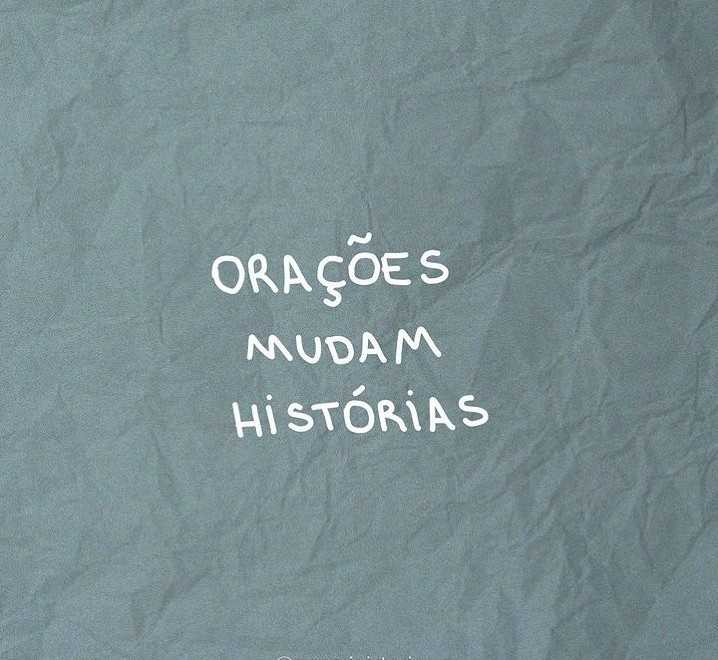 ORAÇÕES
MUDAM
HiSTÓRiAS